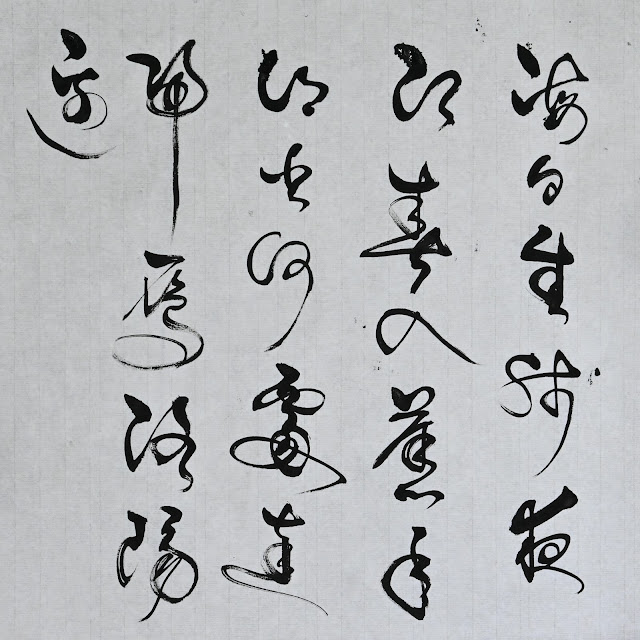 海日生殘夜
江春入舊年
鄉書何處達
歸雁洛陽
邊